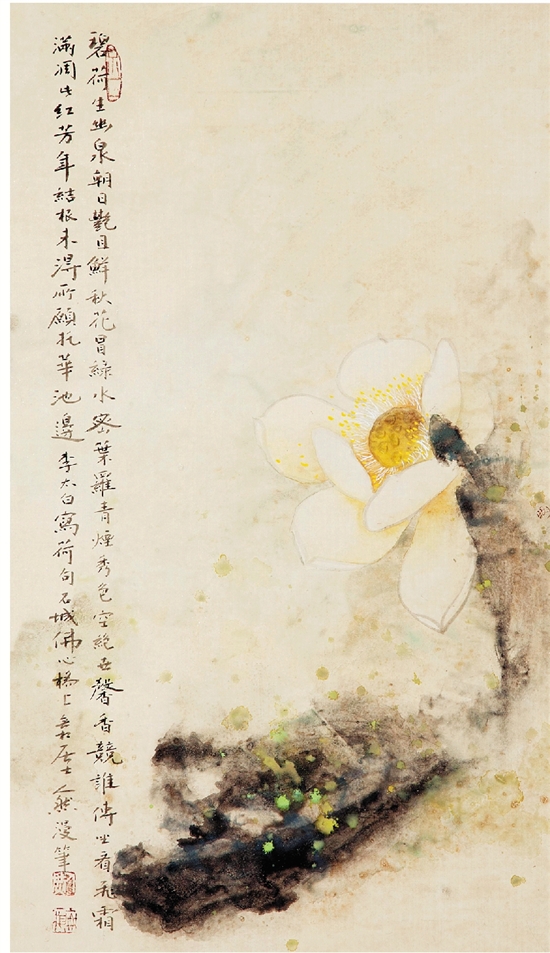 碧荷生幽泉朝日艷且鮮秋花冒綠水密葉羅青煙秀色空絕世馨香競誰傳坐看飛霜
滿凋此紅芳年結根未得所願托華池邊李太白寫荷句石城佛心橋上居士人然漫筆